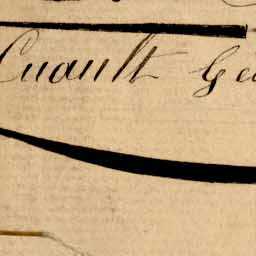 Cuault Ge